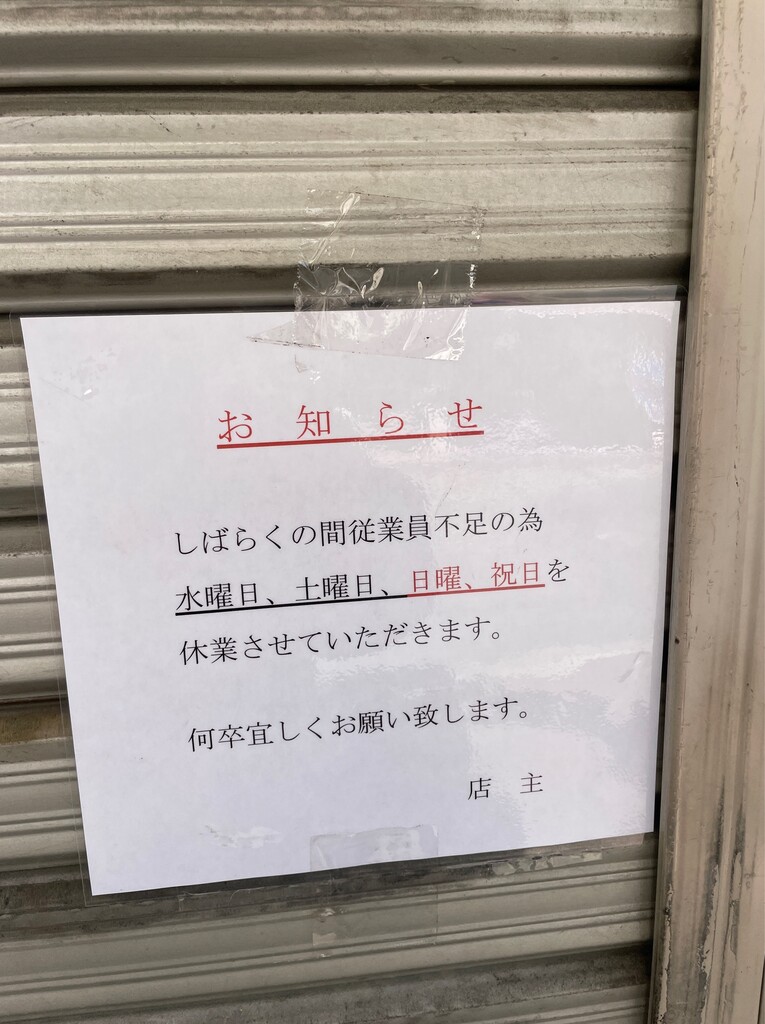 お　知　ら　せ
しばらくの間従業員不足の為
水曜日、土曜日、日曜、祝日を
休業させていただきます。
何卒宜しくお願い致します。
店　主